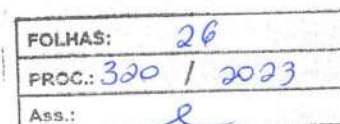 FOLHAS: 26
PROC.: 320 / 2023
Ass.: